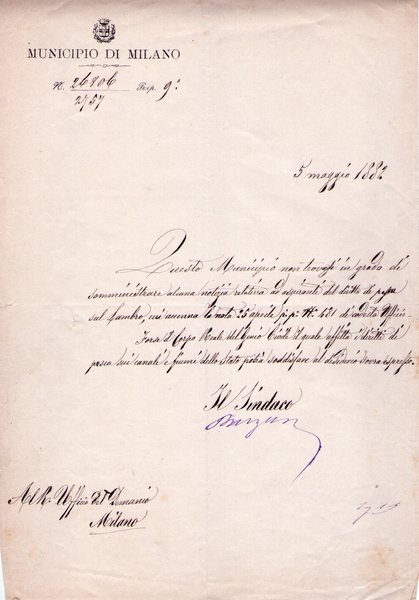 MUNICIPIO DI MILANO
N. 26806 Rip. 9ª
2757
5 maggio 1882
Questo Municipio non trovasi in grado di
somministrare alcuna notizia relativa ad aspiranti del diritto di pesca
sul Lambro, cui accenna la nota 25 aprile p. p. N. 431 di codesto Ufficio.
Forse il Corpo Reale del Genio Civile il quale affitta i diritti di
pesca sui canali e fiumi dello Stato potrà soddisfare al desiderio sovra espresso.
Il Sindaco
Al R. Ufficio del Demanio
Milano